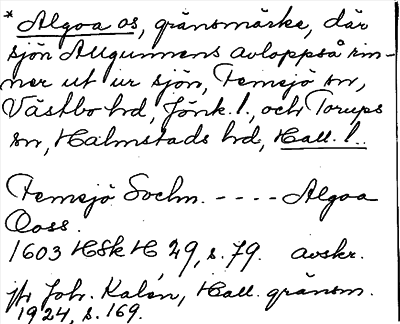 * Algoa os, gränsmärke, där
sjön Algunnens avloppså rin-
ner ut ur sjön, Femsjö sn,
Västbo hd, Jönk. l., och Torups
sn, Halmstads hd, Hall. l..
Femsjö Sochn. - - - - Algoa
Ooss.
1603 HSk H 29, s. 79. avskr.
jfr Joh. Kalén, Hall. gränsm.
1924, s. 169.